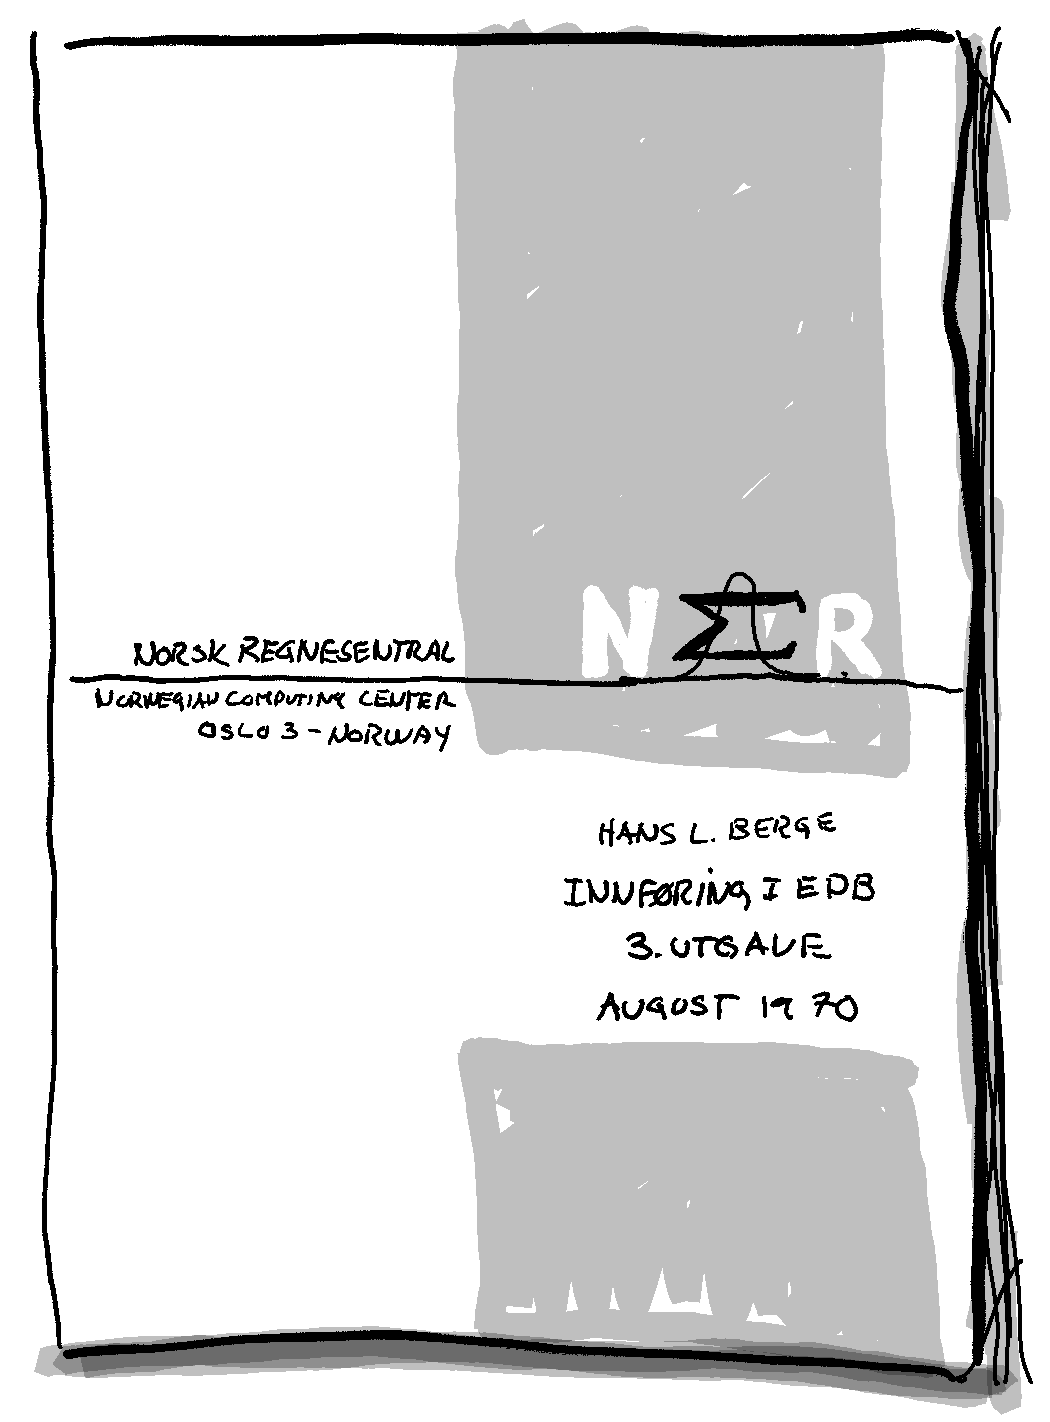 N Σ R
NORSK REGNESENTRAL
NORWEGIAN COMPUTING CENTER
OSLO 3 - NORWAY
HANS L. BERGE
INNFØRING I EDB
3. UTGAVE
AUGUST 1970